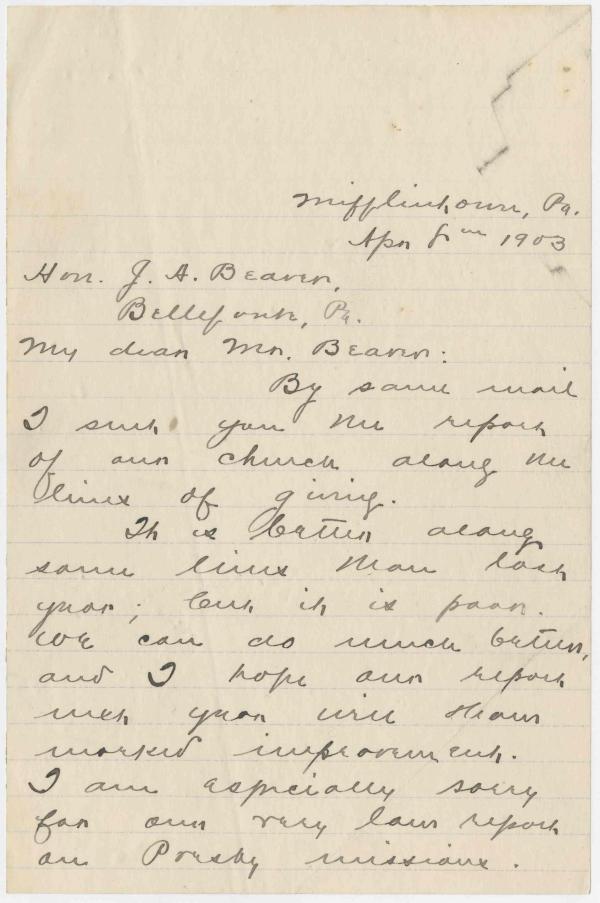 Mifflintown, Pa.
Apr 8th 1903
Hon. J. A. Beaver,
Bellefonte, Pa.
My dear Mr. Beaver:
By same mail
I send you the report
of our church along the
lines of giving.
It is better along
some lines than last
year; but it is poor.
We can do much better,
and I hope our report
next year will show
marked improvement.
I am especially sorry
for our very low report
on Presby missions.